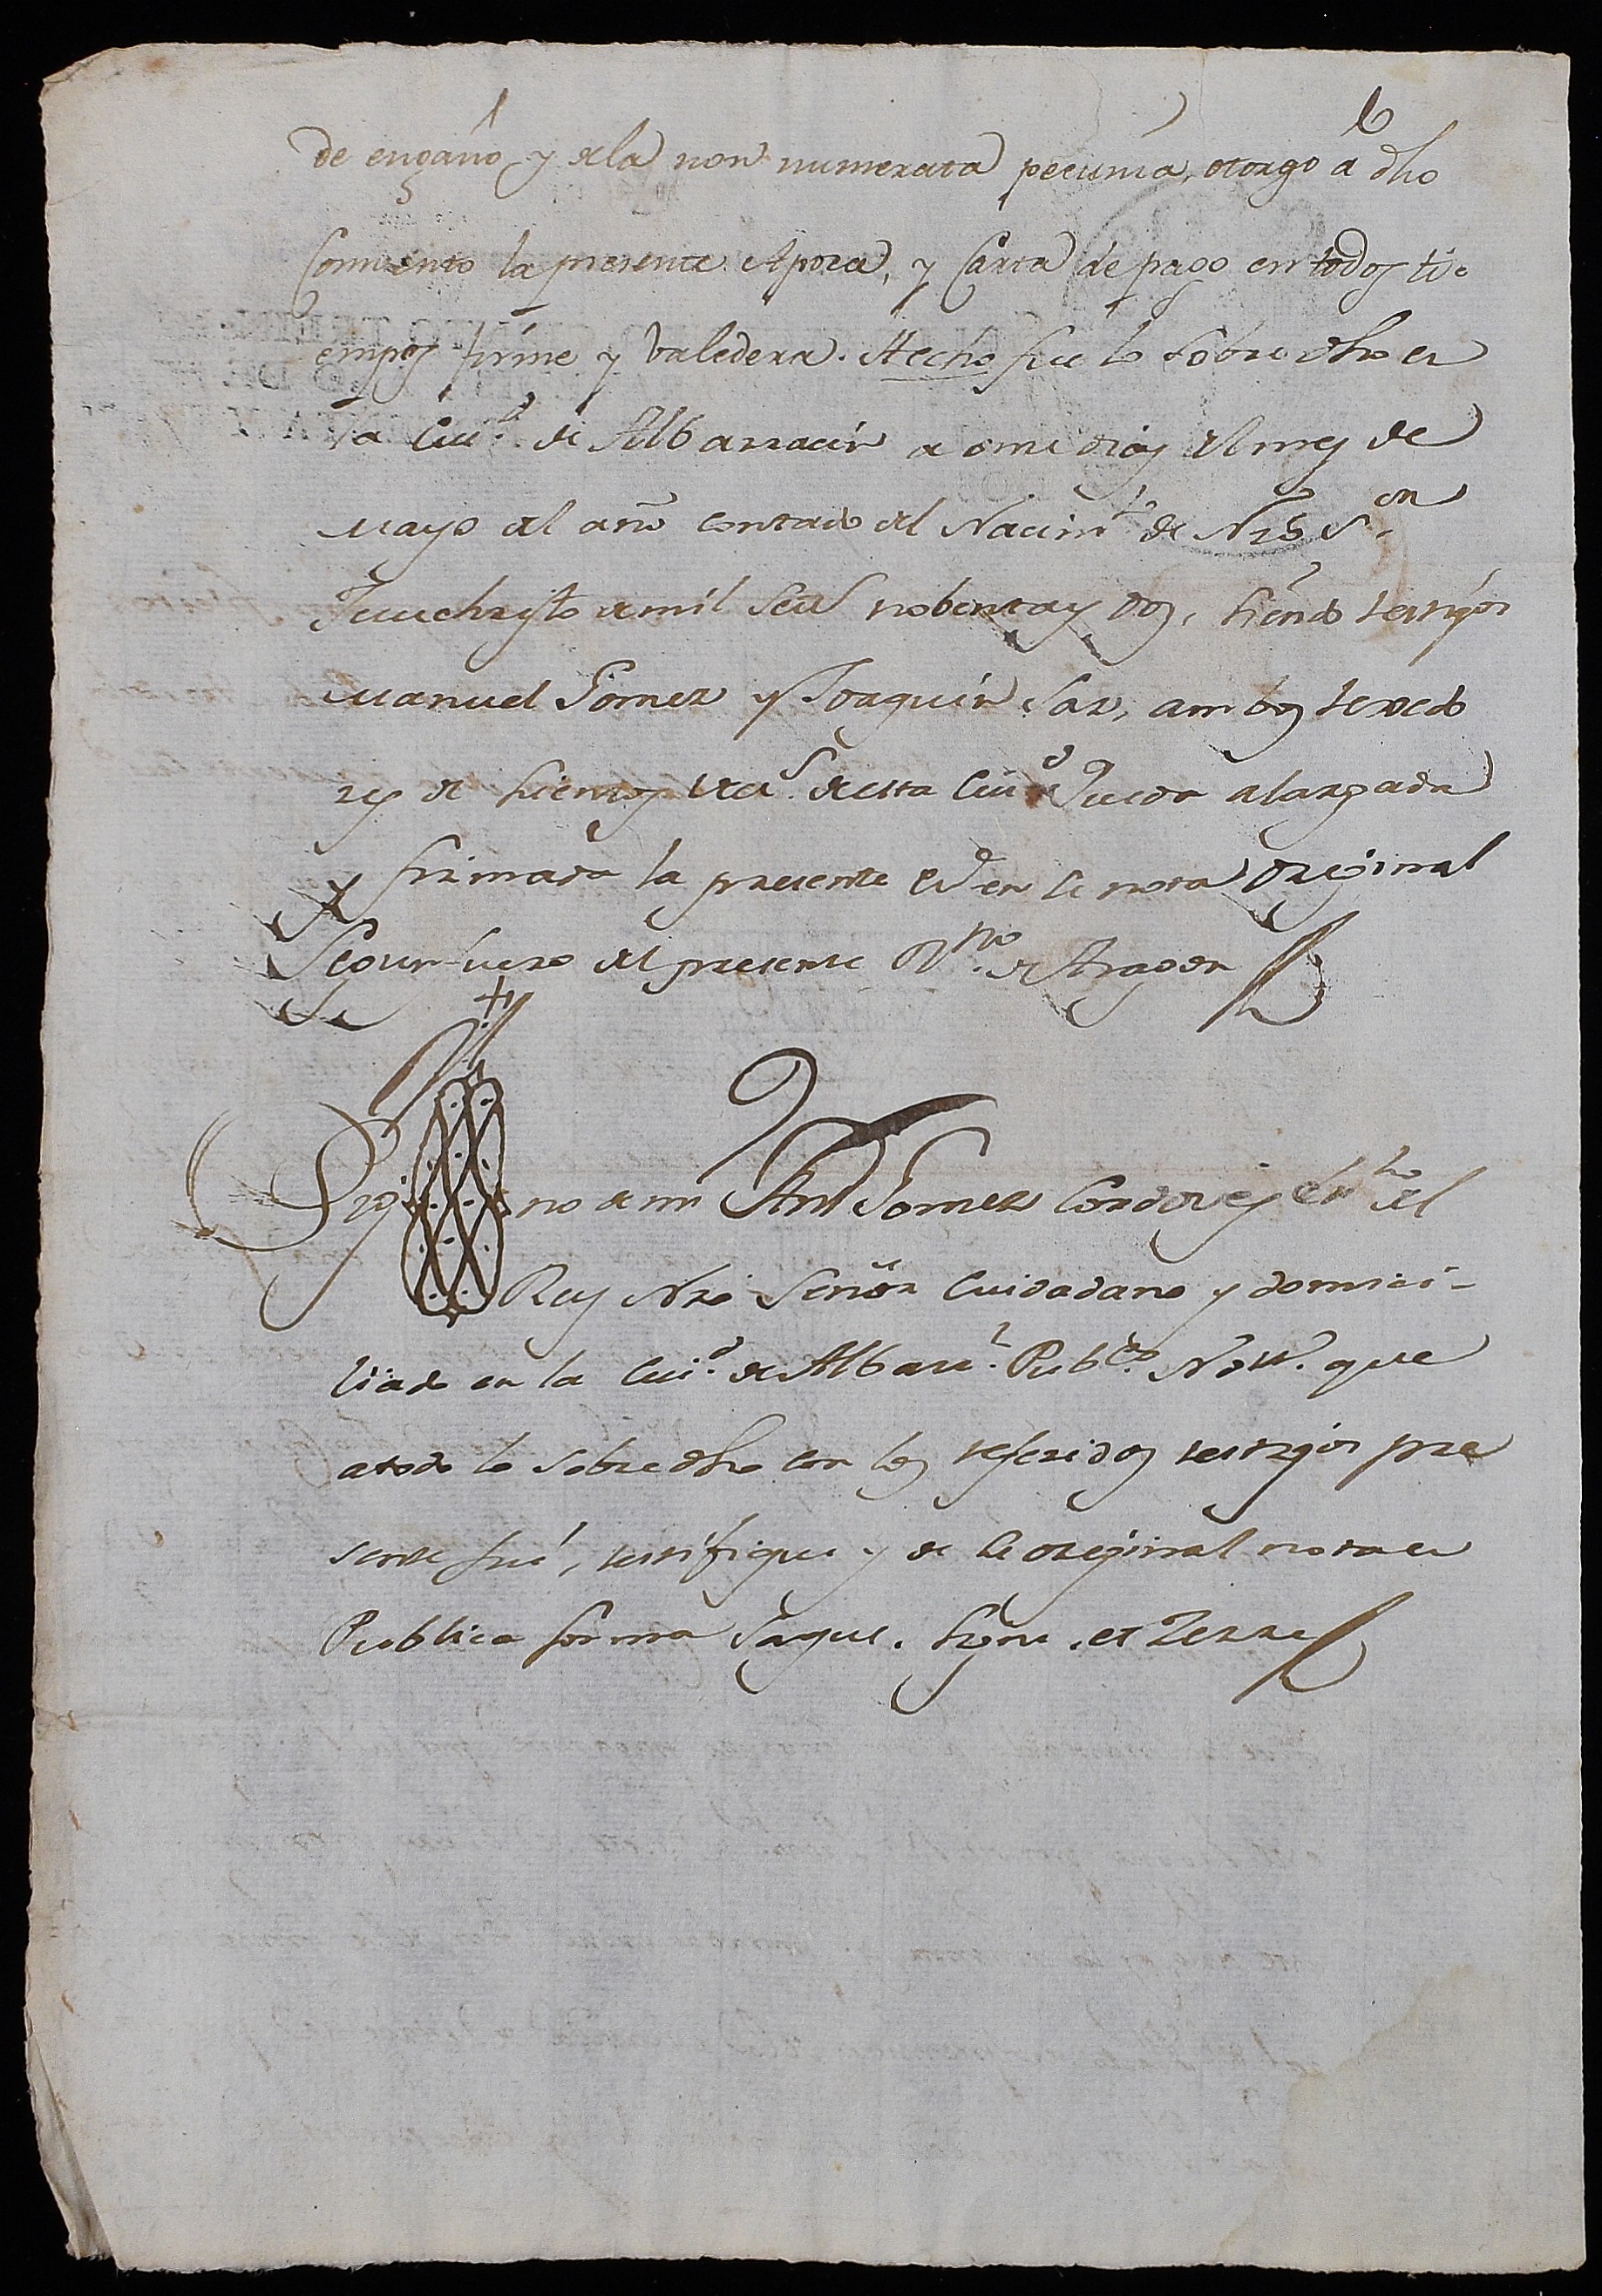 de engaño, y dela non numerata pecunia, otorgo á dho
Convento la presente Apoca, y Carta de pago en todos ti-
empos firme y valedera. Hecho fue lo sobre dho en
la Ciu.d de Albarracin a onze dias del mes de
Mayo del año contado del Nacim.to de Nro S.or
Jesuchristo de mil Sets nobenta y dos, siendo testigos
Manuel Gomez y Joaquin Saz, ambos texedo
res de Lienzos vecs. de esta Ciu.d Queda alargada
y firmada la presente en la nota original
Segun fuero del presente R.no de Aragon
Sig no de mi Ant Gomez Cordoves Es.no del
Rey Nro Señor Ciudadano y domici-
liado en la Ciu.d de Albarn. Pub.co Nott. que
a todo lo sobredho con los referidos testigos pre
sente fui, testifique y de la original nota en
Publica forma saque. Signe. et Zerre